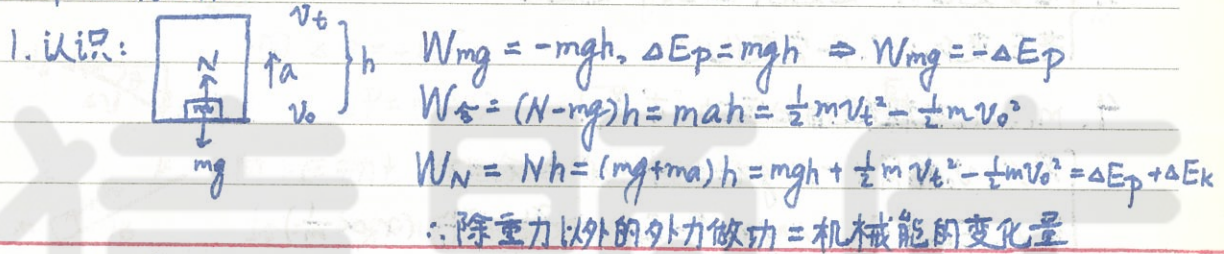 1. 认识:
m
N
mg
↑a
v_t
v_0
} h
W_mg = -mgh, ΔE_P = mgh ⇒ W_mg = -ΔE_P
W_合 = (N-mg)h = mah = ½mv_t² - ½mv_0²
W_N = Nh = (mg+ma)h = mgh + ½mv_t² - ½mv_0² = ΔE_P + ΔE_K
∴除重力以外的外力做功 = 机械能的变化量